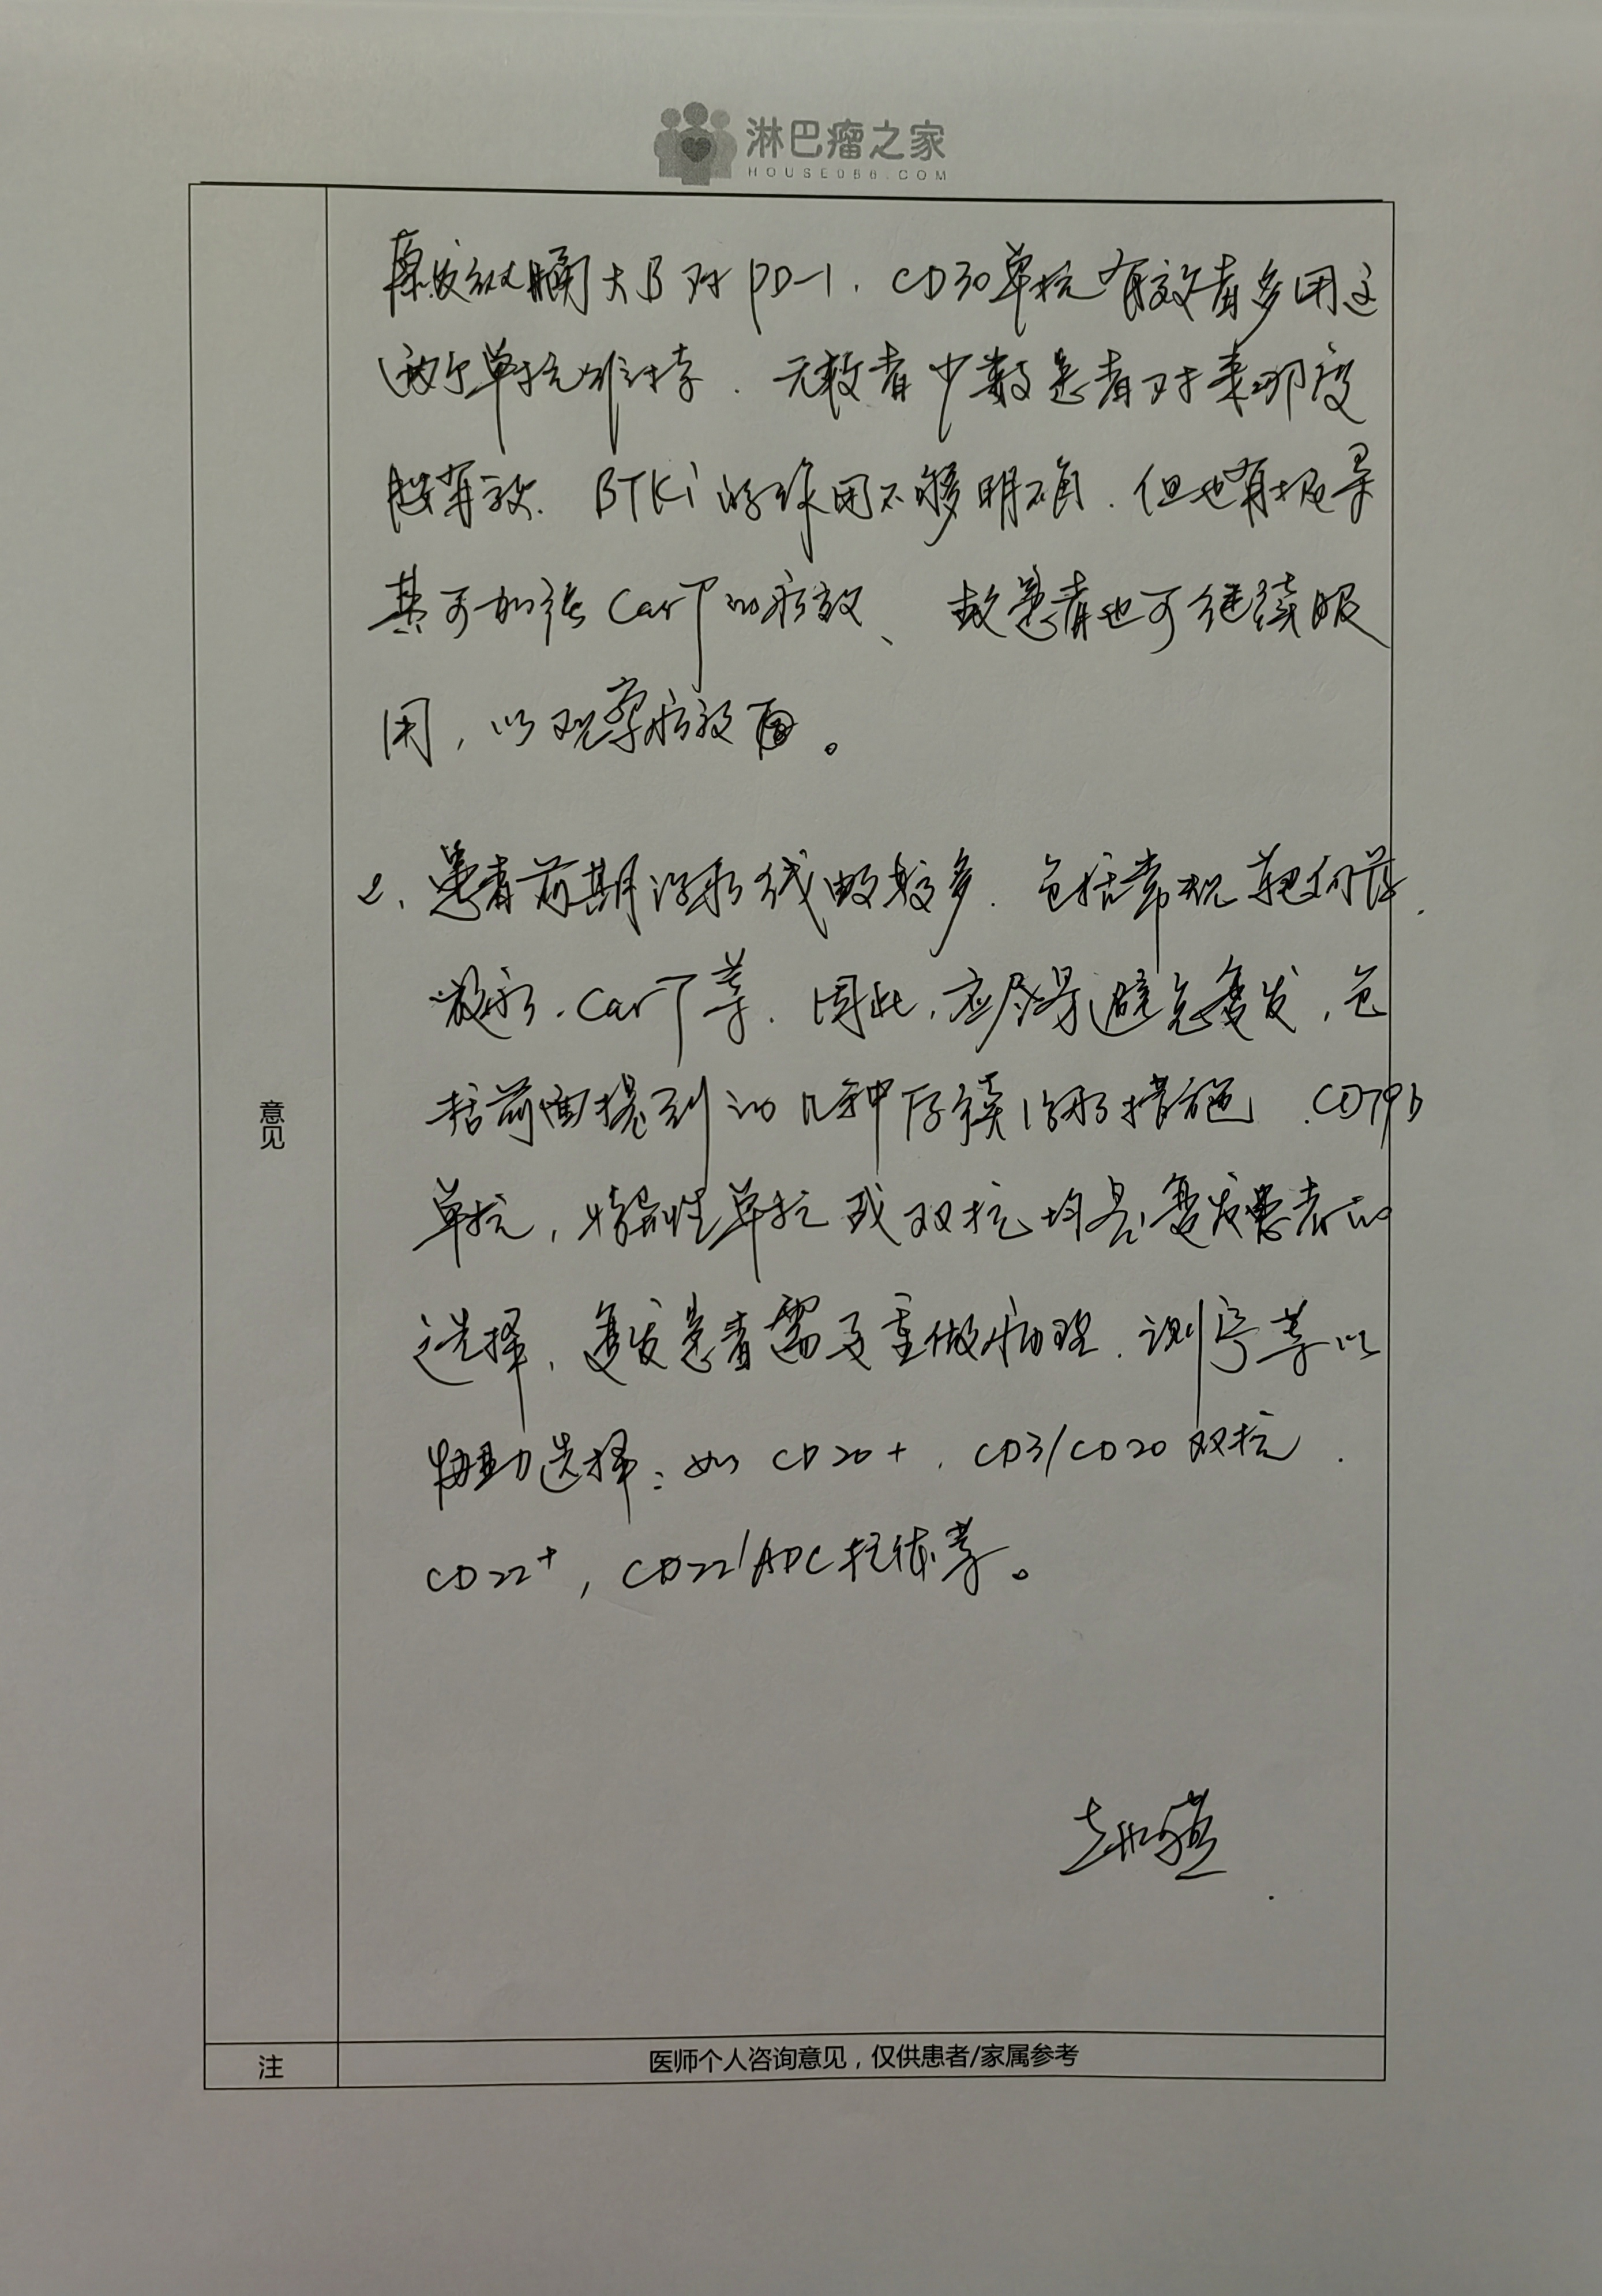 淋巴瘤之家
HOUSE086.COM
原发纵膈大B对PD-1、CD30单抗有效者多用这
两个单抗维持．无效者少数患者对来那度
胺有效．BTKi的作用不够明确．但也有报导
其可加强CarT的疗效、故患者也可继续服
用，以观察疗效。
2、患者前期治疗线数较多．包括常规靶向药．
放疗．CarT等．因此，应尽量避免复发，包
括前面提到的几种后续治疗措施．CD79b
单抗，特异性单抗或双抗均是复发患者的
选择，复发患者需要重做病理．测序等以
协助选择：如CD20+．CD3/CD20双抗．
CD22+，CD22/ADC抗体等。
意见
注
医师个人咨询意见，仅供患者/家属参考